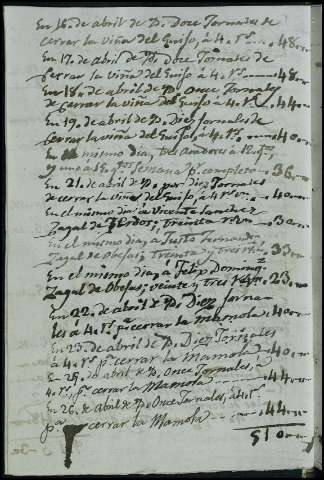 En 16. de abril de D. Doce Jornales de
cerrar la viña del Guiso, à 4. r.s 48
En 17. de abril de D. Doce Jornales de
cerrar la viña del Guiso à 4. r.s 48
En 18. de abril de D. Once Jornales
de cerrar la viña del Guiso à 4. r.s 44
En 19. de abril de D. Diez Jornales de
cerrar la viña del Guiso, à 4. r.s 40
En mismo dia, tres à 12. q.s
y uno à Semana p.r completa 36
En 21. de abril de D. por diez Jornales
de cerrar la viña del Guiso, à 4 r.s 40
En el mismo dia a Vicente Sanchez
Zagal de treinta r.s 30
en el mismo dia, a Justo Fernand.z
Zagal de Obejas, Treinta y, tres r.s 33
En el mismo dia, à Felix Doming.z
Zagal de Obejas, veinte y tres 23
En 22. de abril de D. Diez Jorna-
les à 4. r.s p.a cerrar la Mamola 40
En 23. de abril de D. Diez Jornales
à 4. r.s p.a cerrar la Mamola 40
En 25. de abril de D. Once Jornales, à
4. r.s p.a cerrar la Mamola 44
En 26. de abril de D. Once Jornales, à 4 r.s
pa cerrar la Mamola 44
510